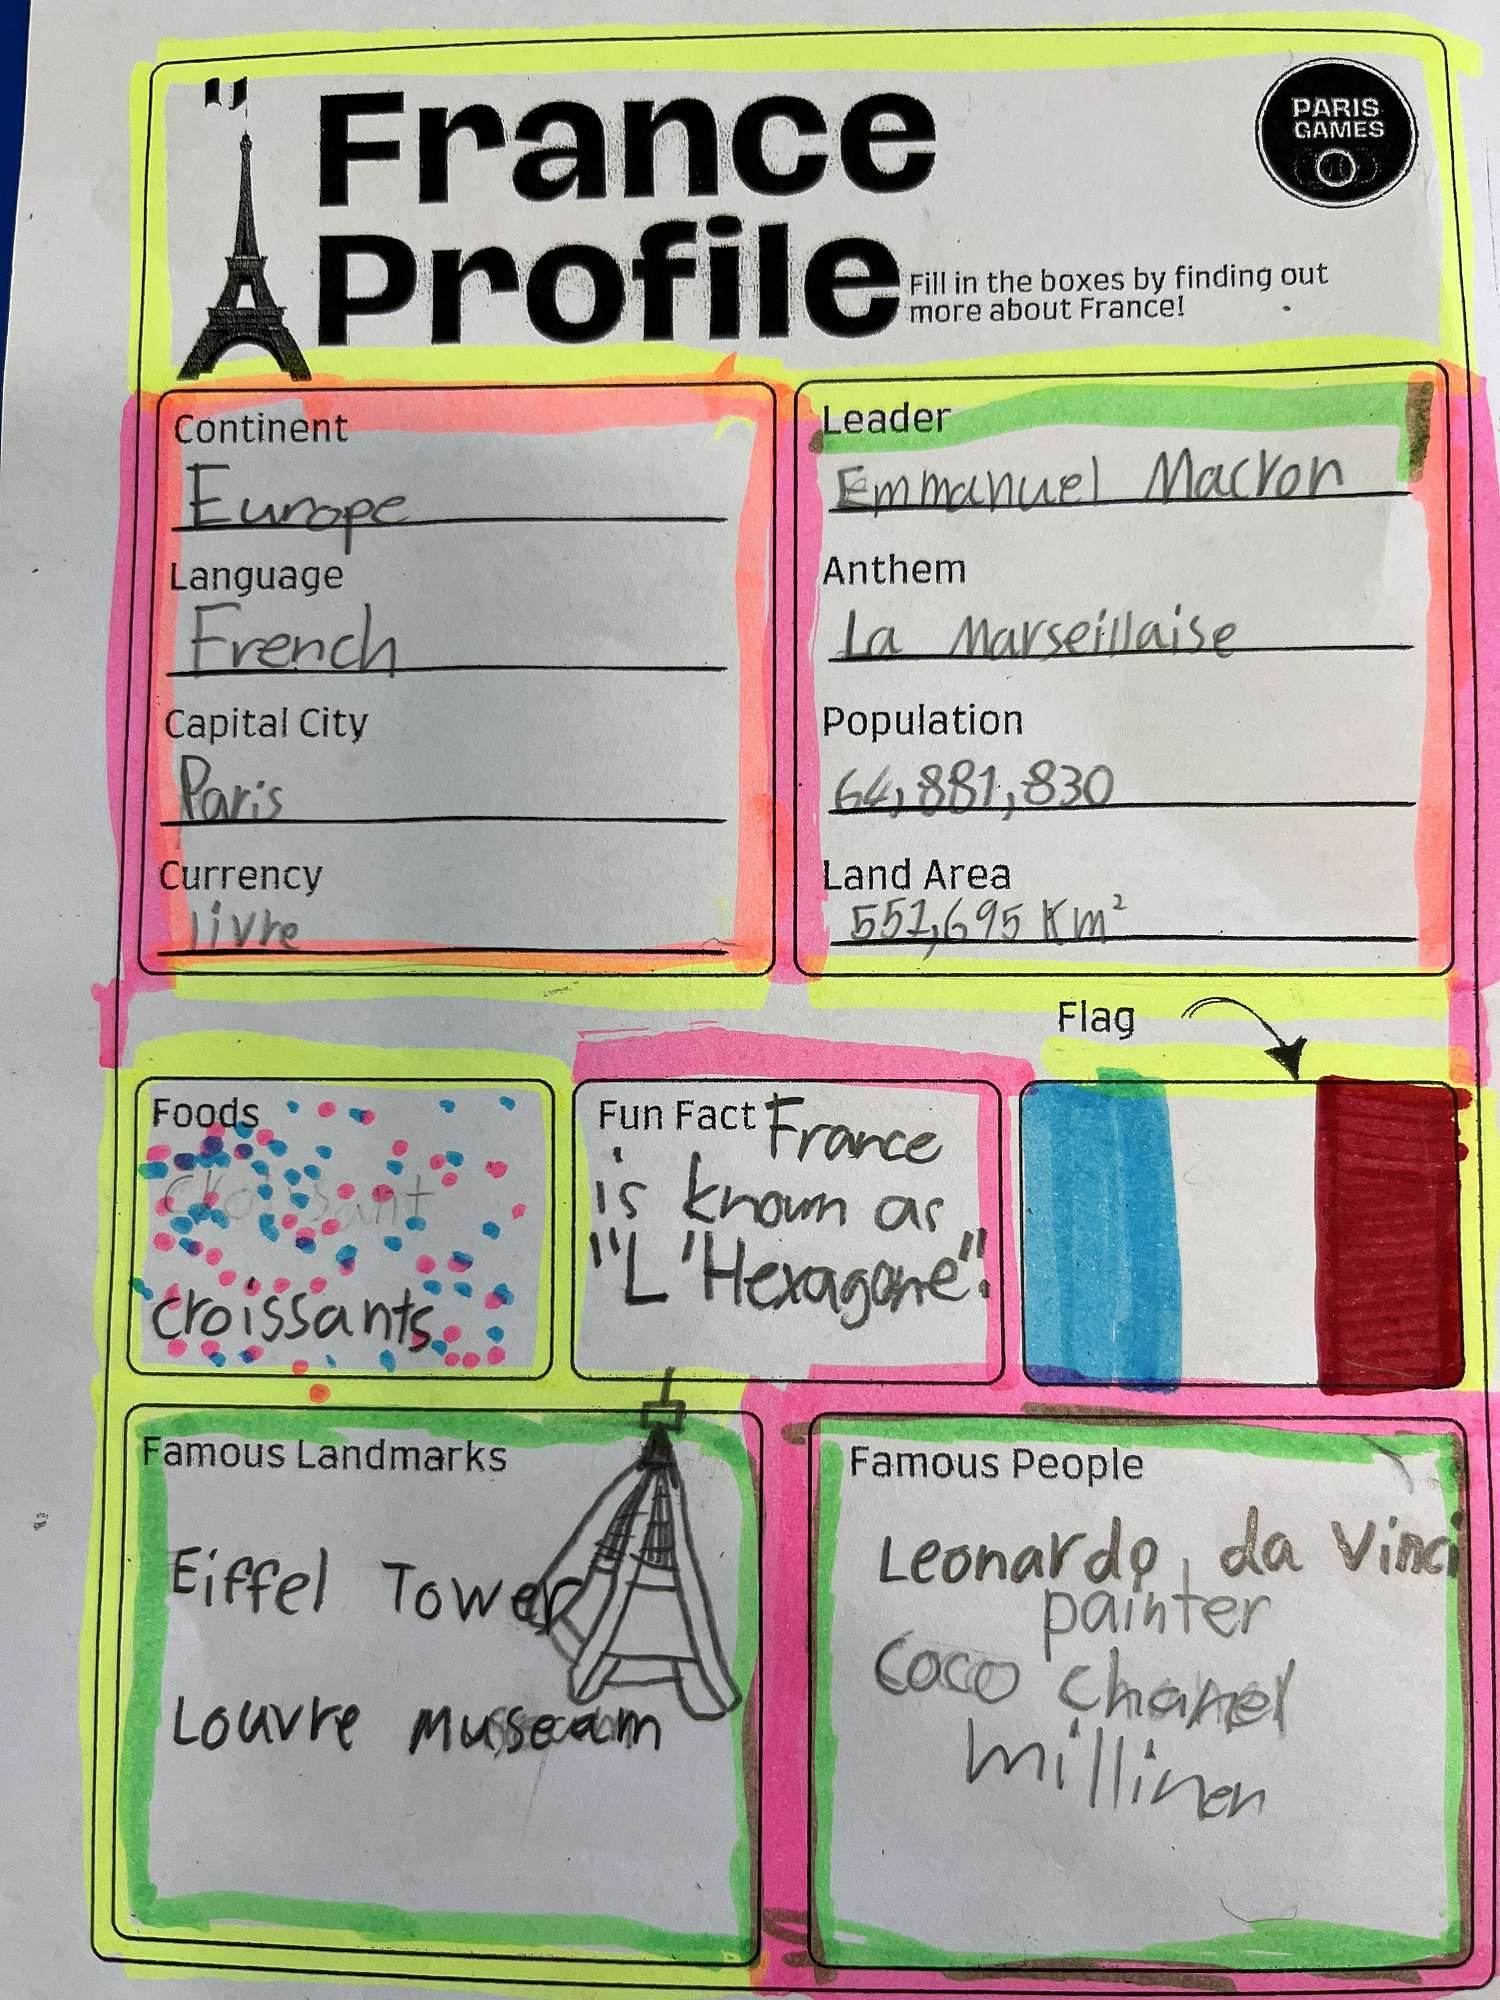 France
Profile
PARIS
GAMES
Fill in the boxes by finding out
more about France!
Continent
Europe
Language
French
Capital City
Paris
Currency
livre
Leader
Emmanuel Macron
Anthem
La Marseillaise
Population
64,881,830
Land Area
551,695 Km²
Foods
croissant
croissants
Fun Fact France
is known as
"L'Hexagone".
Flag
Famous Landmarks
Eiffel Tower
Louvre Museeam
Famous People
Leonardo, da Vinci
painter
Coco Chanel
milliner